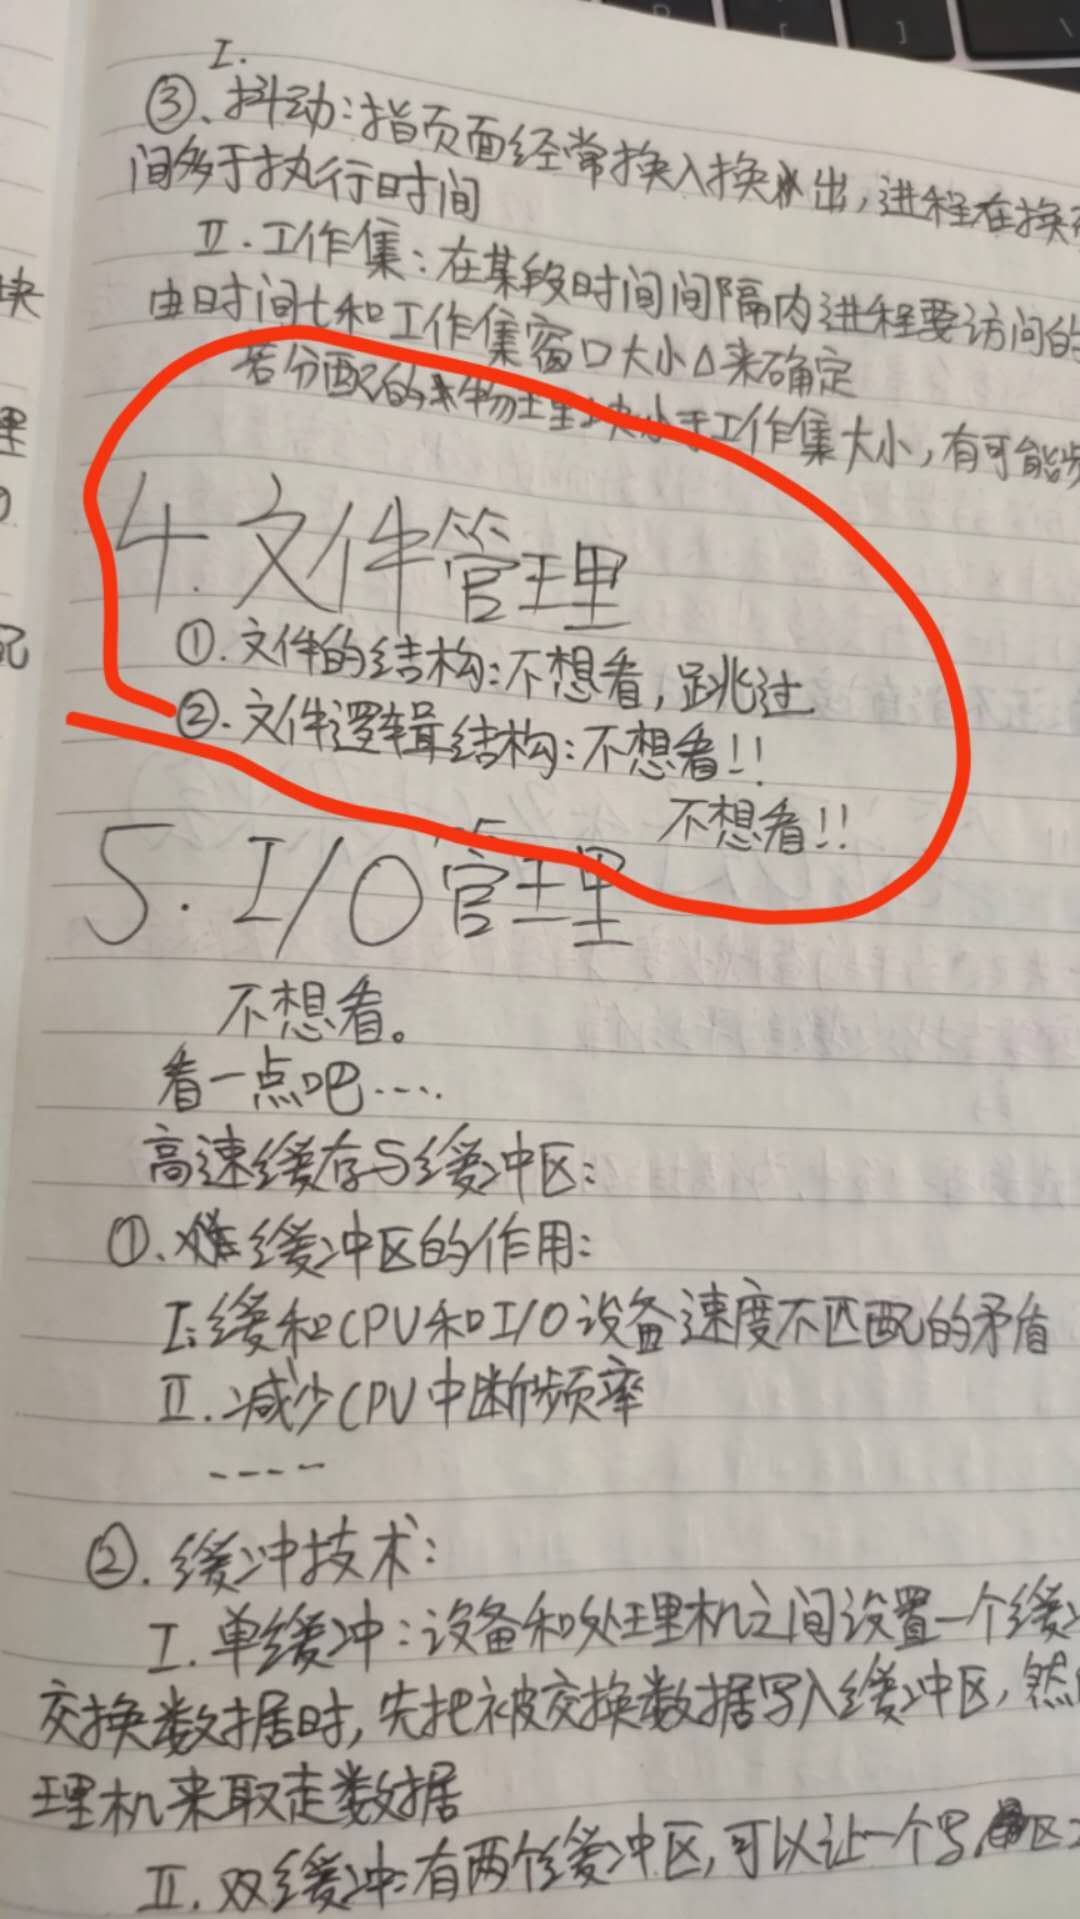 I.
③、抖动：指页面经常换入换出，进程在换
间多于执行时间
II.工作集：在某段时间间隔内进程要访问的
由时间t和工作集窗口大小Δ来确定
若分配的物理块小于工作集大小，有可能
4.文件管理
①.文件的结构：不想看，跳过
②.文件逻辑结构：不想看!!
不想看!!
5.I/O管理
不想看。
看一点吧····
高速缓存与缓冲区：
①.缓冲区的作用：
I.缓和CPU和I/O设备速度不匹配的矛盾
II.减少CPU中断频率
-----
②.缓冲技术：
I.单缓冲：设备和处理机之间设置一个缓
交换数据时，先把被交换数据写入缓冲区，然
理机来取走数据
II.双缓冲：有两个缓冲区，可以让一个写
块
理
配